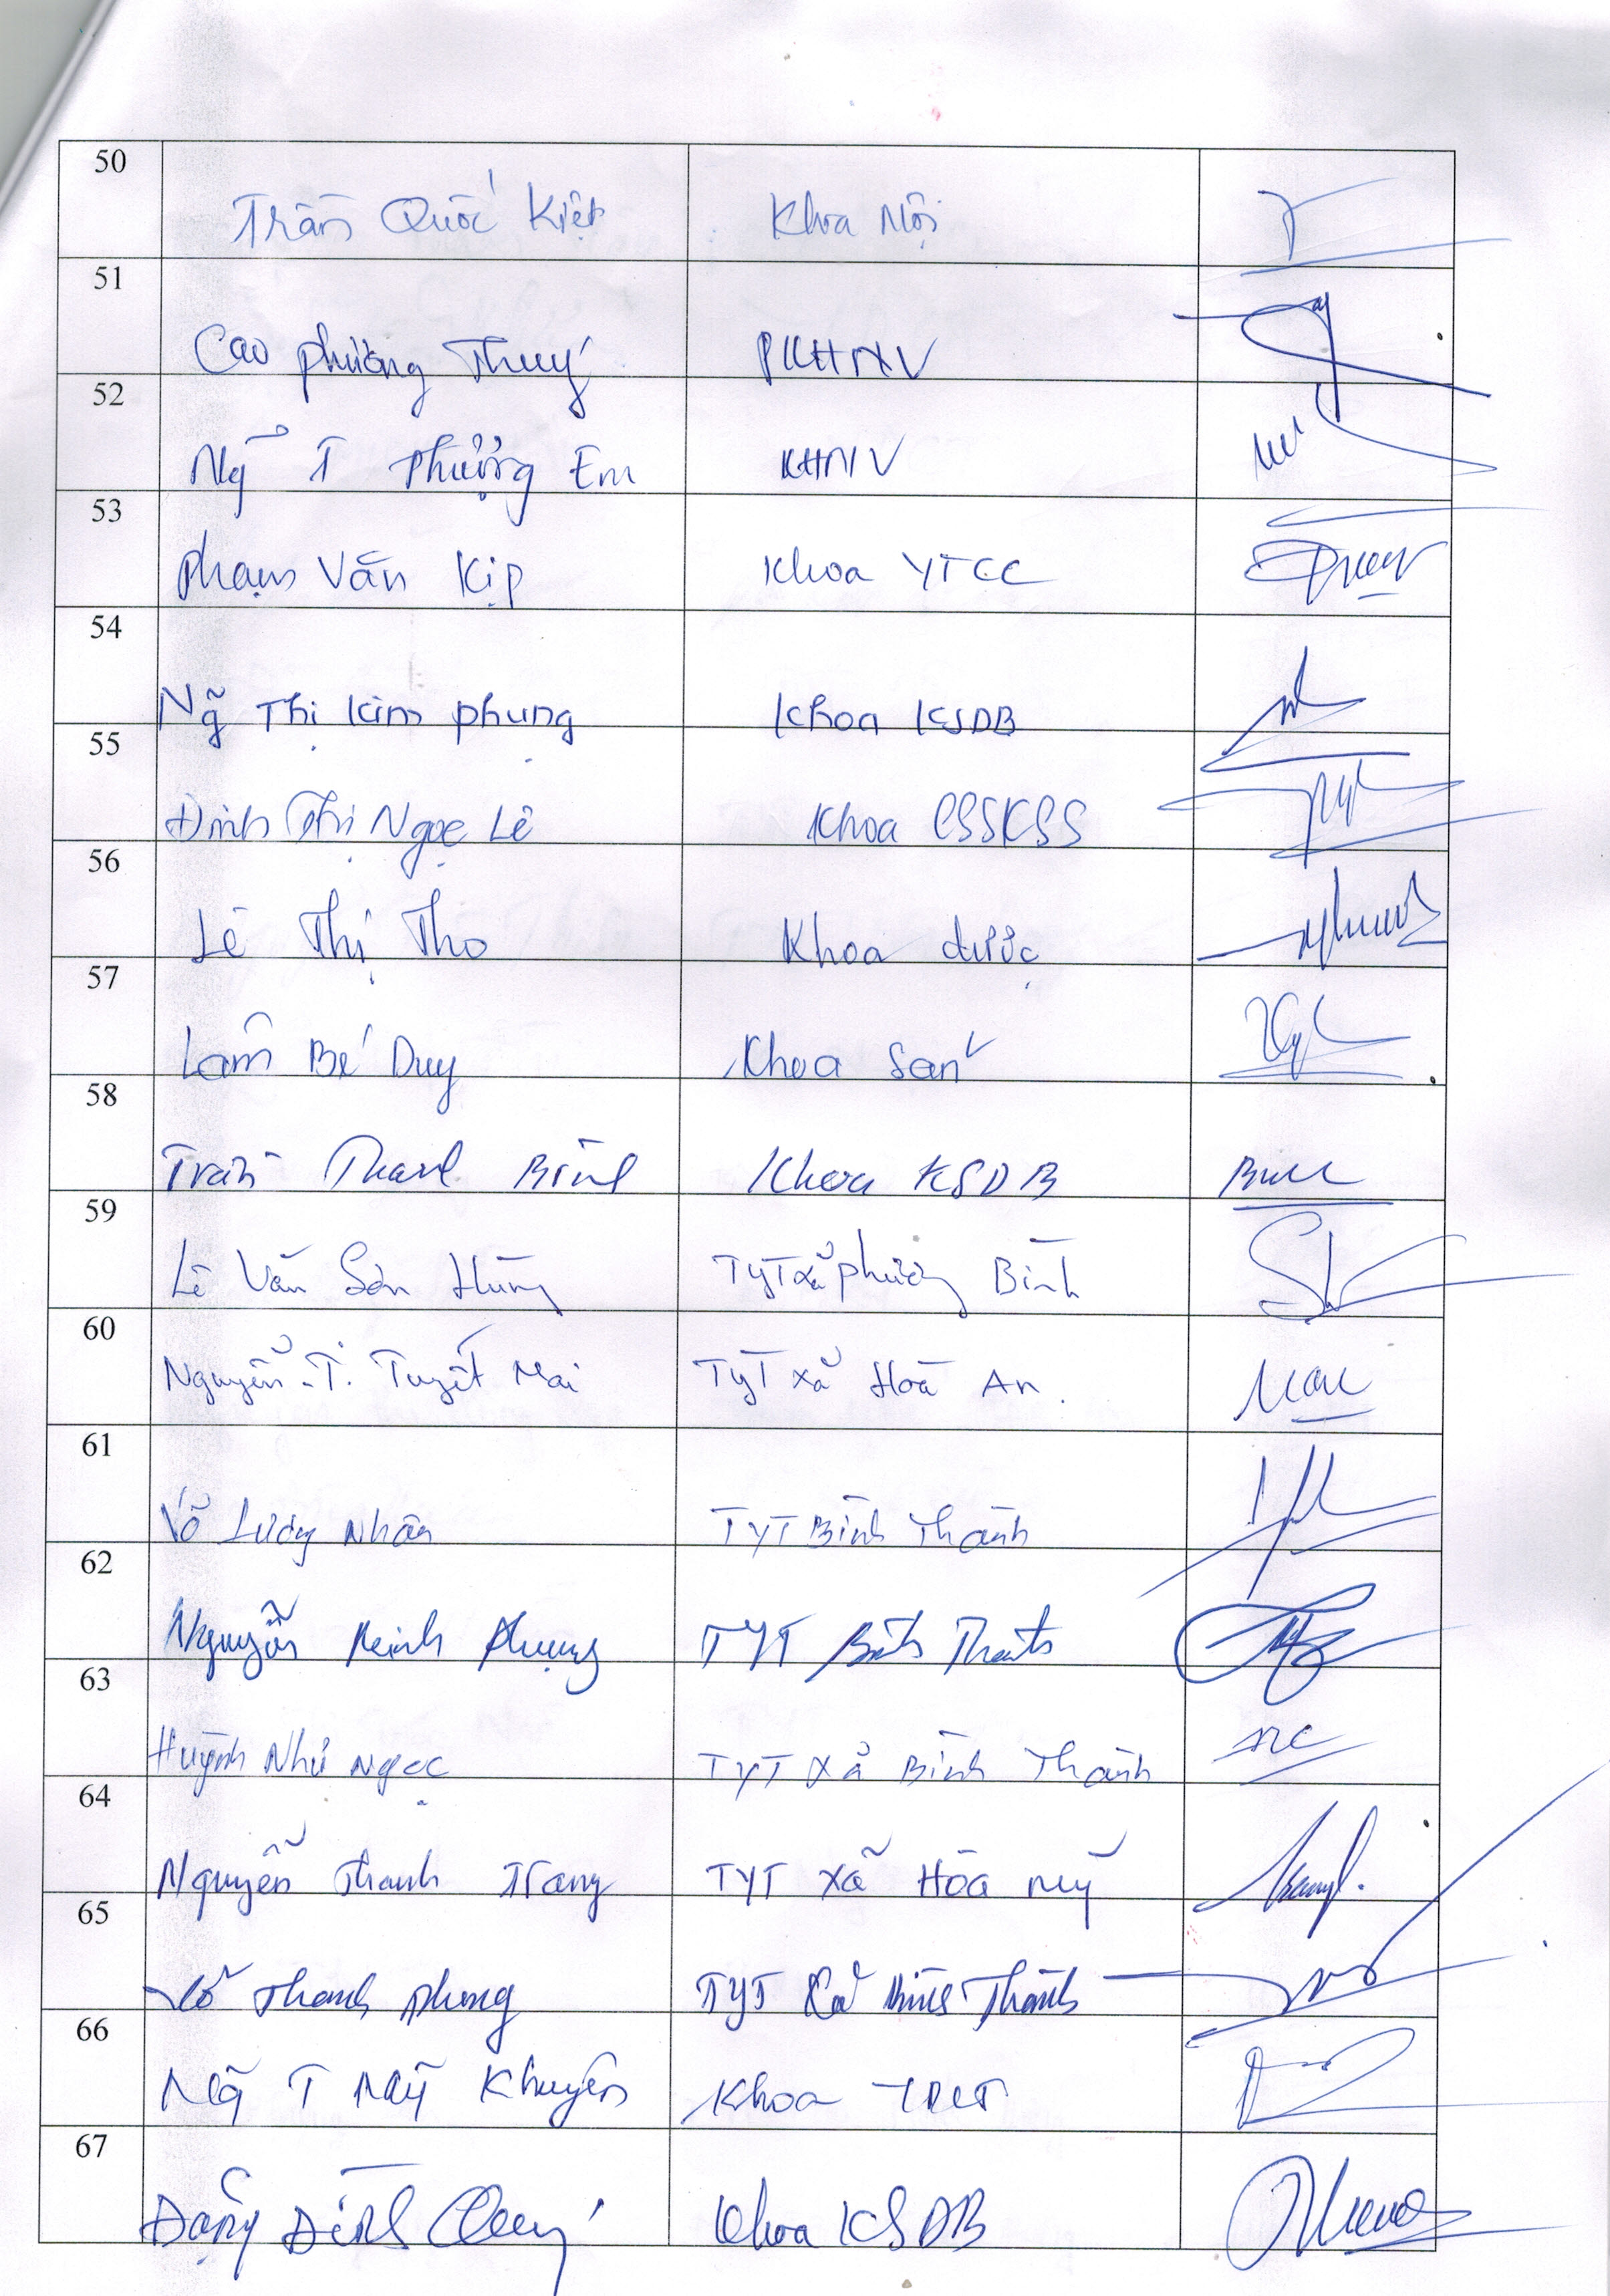 50
Trần Quốc Kiệt Khoa Nội
51
Cao Phương Thuý PKHNV
52
Ng̃ T Phượng Em KHNV
53
Phạm Văn Kịp Khoa YTCC
54
Ng̃ Thị Kim Phụng Khoa KSDB
55
Đinh Thị Ngọc Lê Khoa CSSKSS
56
Lê Thị Tho Khoa dược
57
Lâm Bé Duy Khoa Sản
58
Trần Thanh Bình Khoa KSDB
59
Lê Văn Sơn Hùng TYT xã Phương Bình
60
Nguyễn T. Tuyết Mai TYT xã Hoà An.
Mai
61
Võ Lương Nhân TYT Bình Thành
62
Nguyễn Minh Phụng TYT Bình Thành
63
Huỳnh Như Ngọc TYT Xã Bình Thành
64
Nguyễn Thanh Trang TYT Xã Hòa Mỹ
65
Võ Thanh Phong TYT Xã Bình Thành
66
Ng̃ T Mỹ Khuyên Khoa
67
Đặng Đình Khoa KSDB